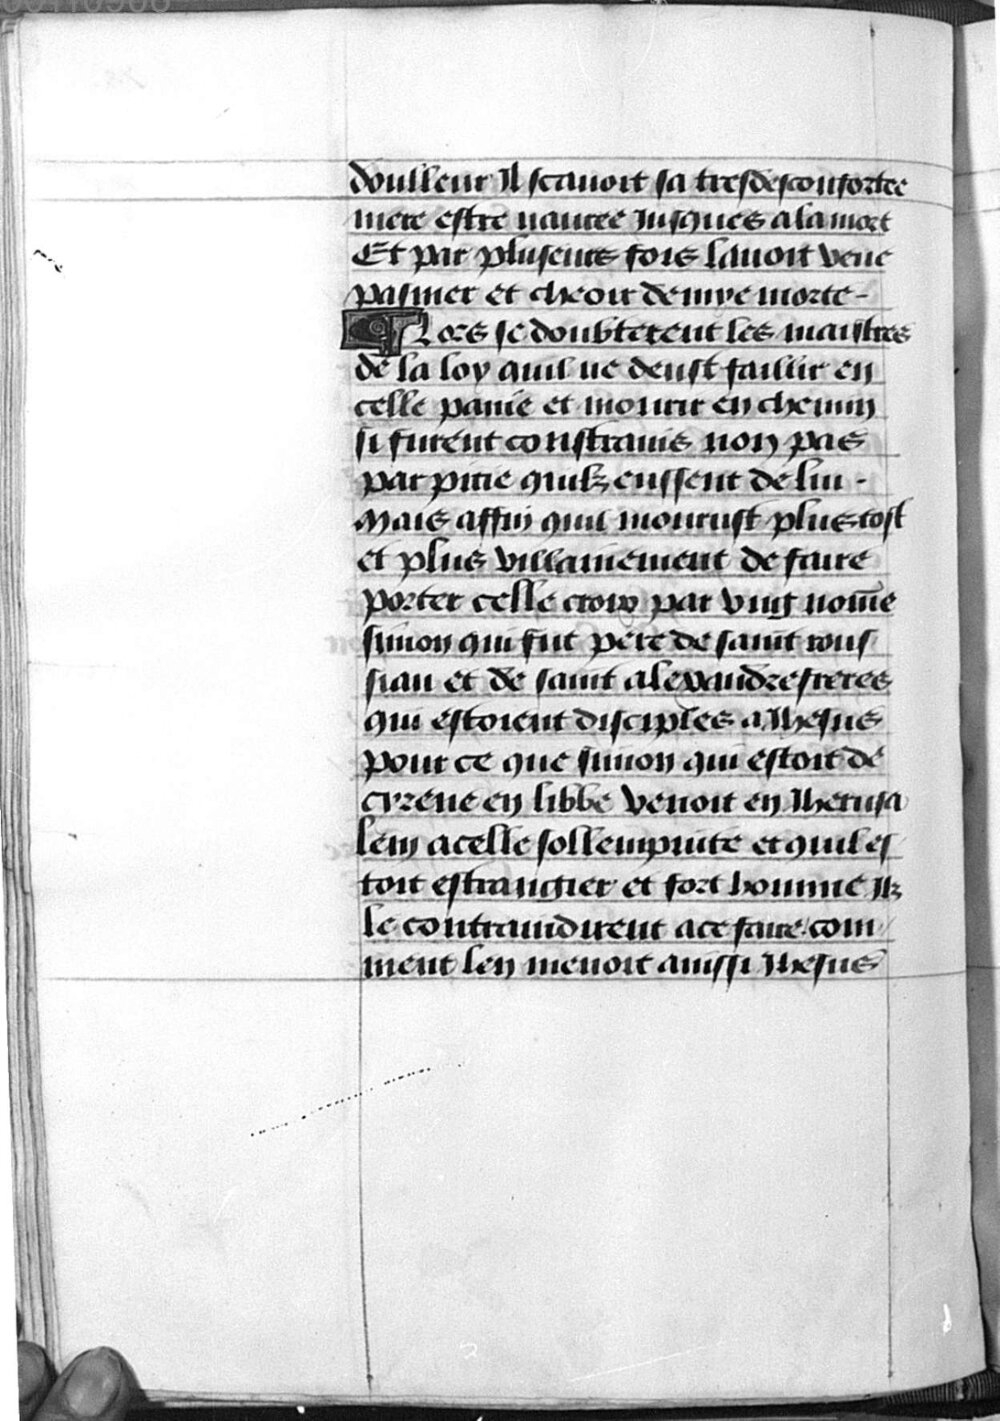 doulleur Il scauoit sa tresdesconfortee
mere estre nauree Jusques a la mort
Et par pluseurs fois lauoit veue
pasmer et cheoir demye morte-
¶ Lors se doubterent les maistres
de la loy quil ne deust faillir en
celle paine et mourir en chemin
si furent constrains non pas
par pitie quilz eussent de lui .
Mais affin quil mourust plustost
et plus villainement de faire
porter celle croix par vng nomẽ
simon qui fut pere de saint rous
sian et de saint alexandre freres
qui estoient disciples a Jhesus
pour ce que simon qui estoit de
cyrene en libbe venoit en Jherusa
lem a celle sollempnite et quil es
toit estrangier et fort homme Ilz
le contraindirent a ce faire. com/
ment len menoit auissi Jhesus